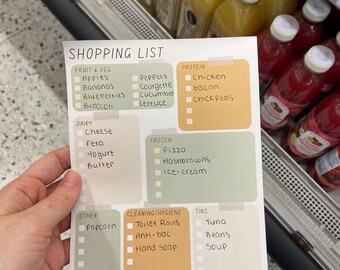 SHOPPING LIST
FRUIT & VEG
Apples
Bananas
Blueberries
Broccoli
Peppers
Courgette
Cucumber
Lettuce
PROTEIN
Chicken
bacon
Chickpeas
DAIRY
Cheese
Feta
Yogurt
Butter
FROZEN
Pizza
Hashbrowns
Ice-cream
OTHER
Popcorn
CLEANING/HYGIENE
Toilet Rolls
Anti-bac
Hand soap
TINS
Tuna
Beans
Soup